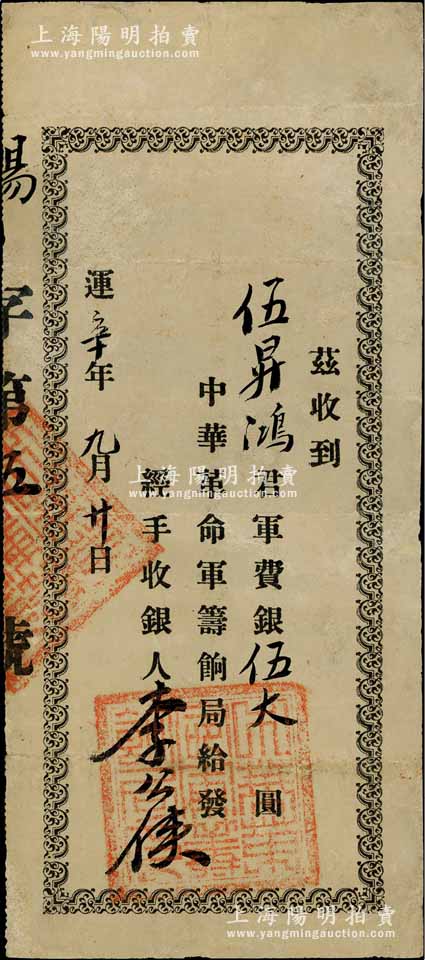 上海陽明拍賣
www.yangmingauction.com
茲收到
伍昇鴻君軍費銀伍大圓
中華革命軍籌餉局給發
經手收銀人李公俠
運辛年九月廿日
字第五號
上海陽明拍賣
www.yangmingauction.com
上海陽明拍賣
www.yangmingauction.com